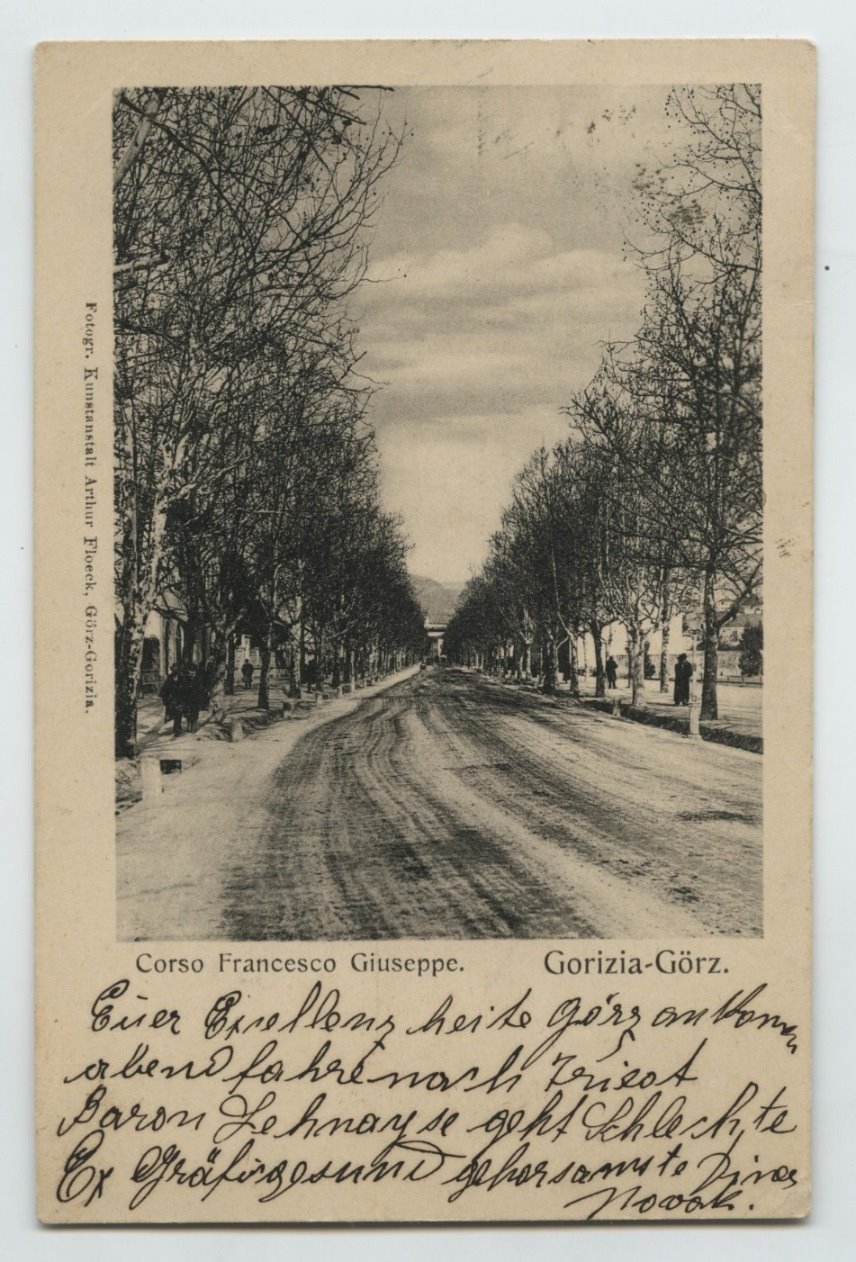 Fotogr. Kunstanstalt Arthur Floeck, Görz-Gorizia.
Corso Francesco Giuseppe. Gorizia-Görz.
Euer Exellenz heite Görz ankomen
abend fahre nach Triest
Baron Lehnayse geht Schlechte
Ex Gräfin gesund gehorsamste
Novak.